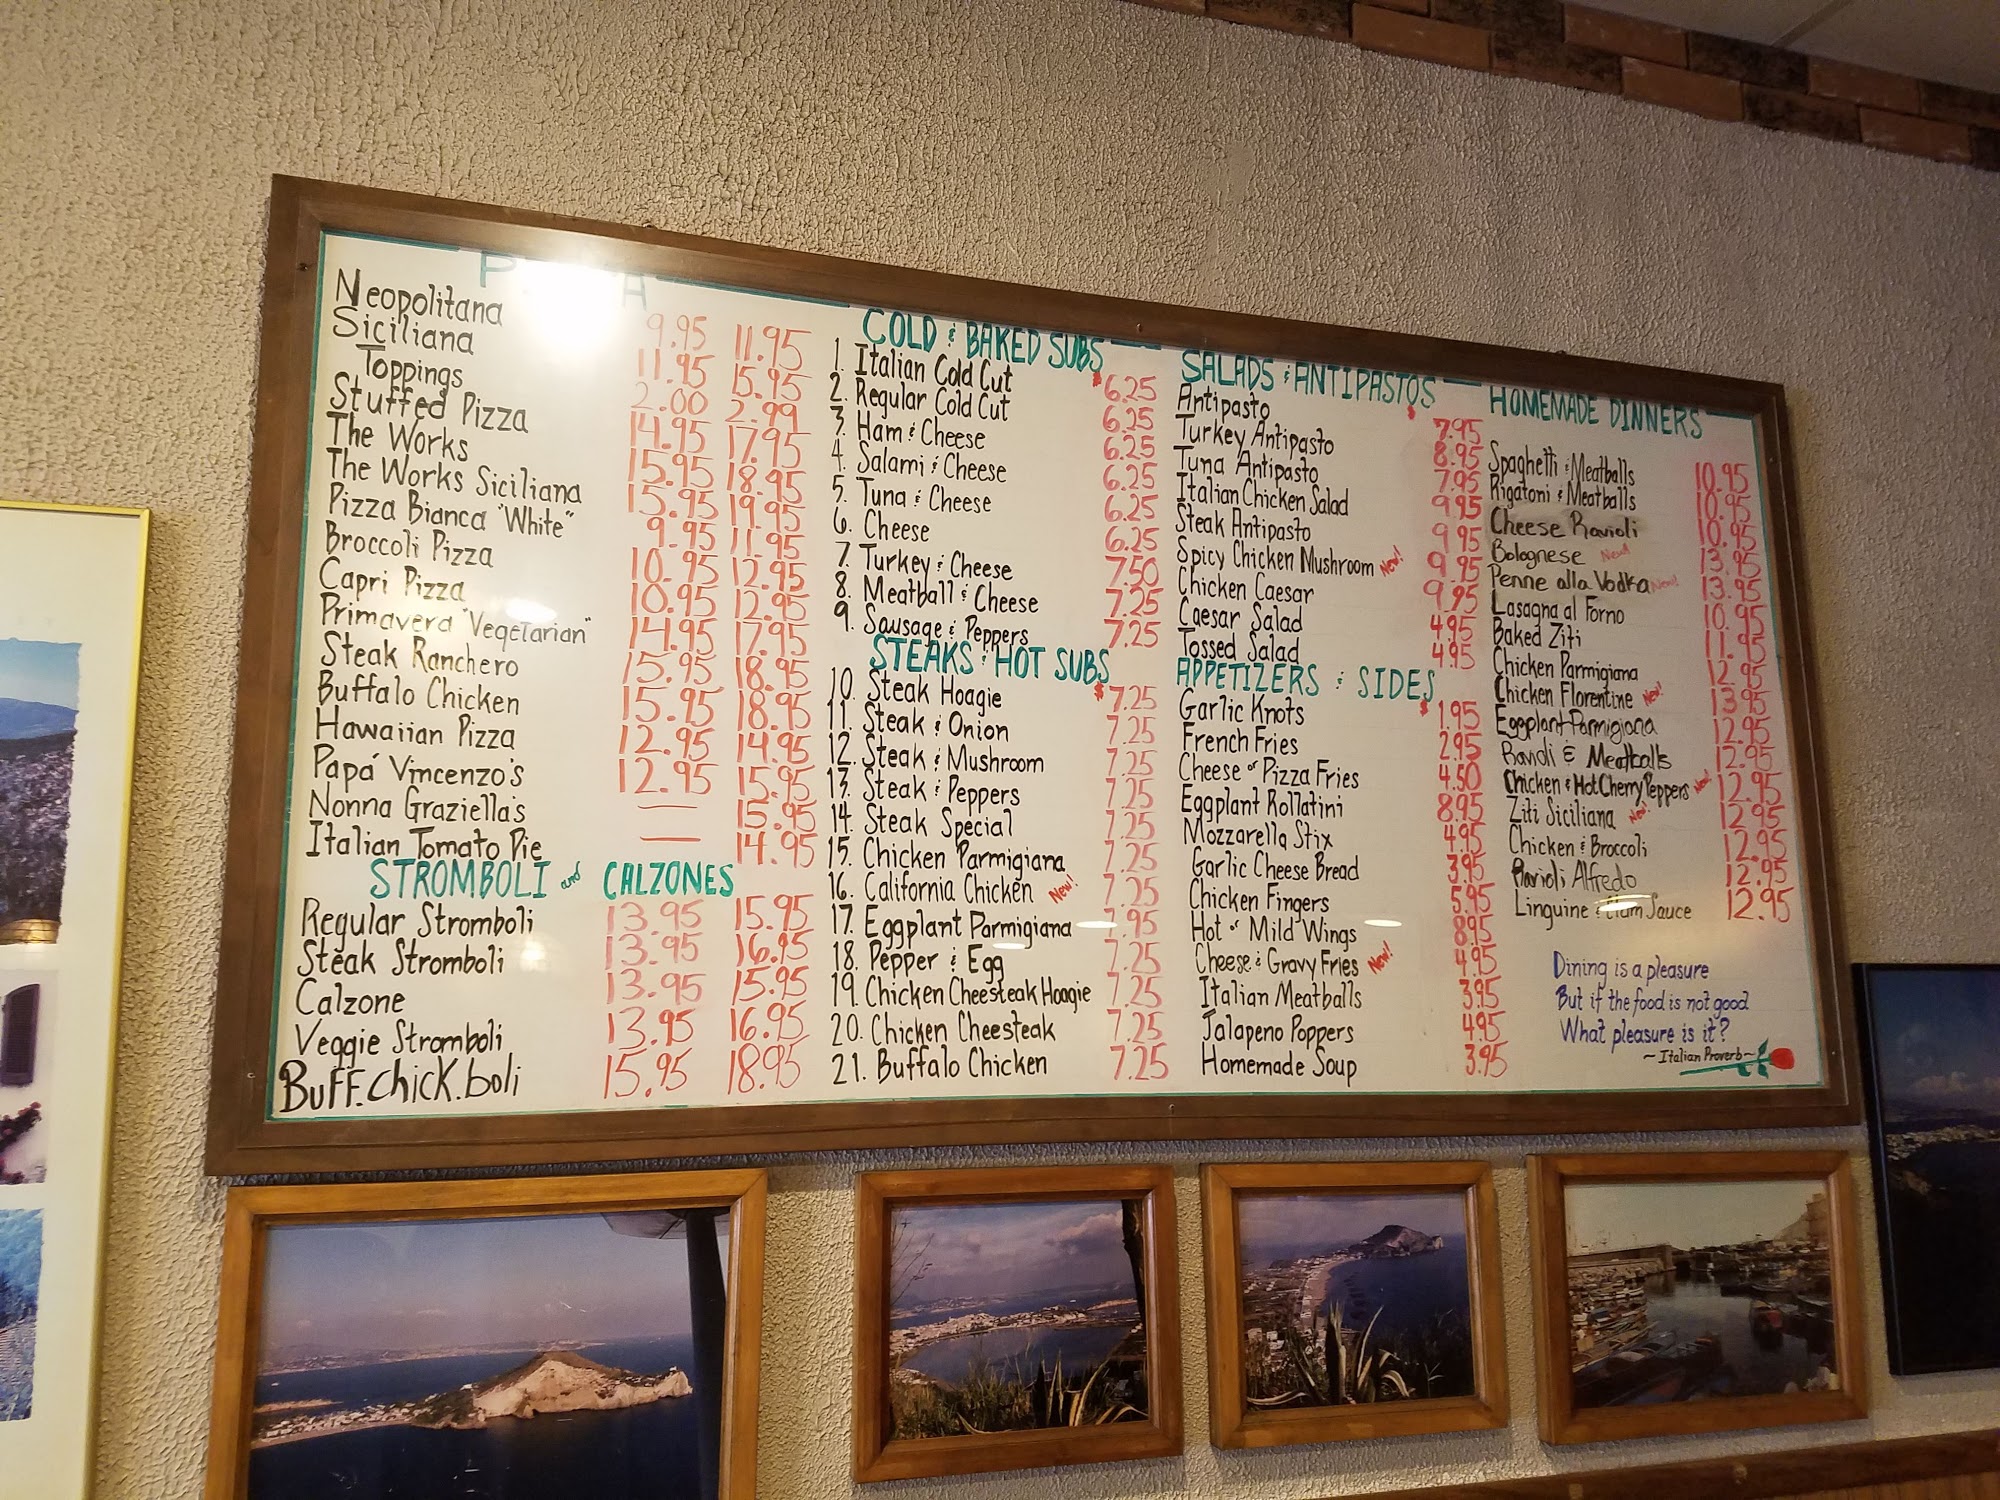 P A
Neopolitana 9.95 11.95
Siciliana 11.95 15.95
Toppings 2.00 2.99
Stuffed Pizza 14.95 17.95
The Works 15.95 18.95
The Works Siciliana 15.95 19.95
Pizza Bianca "White" 9.95 11.95
Broccoli Pizza 10.95 12.95
Capri Pizza 10.95 12.95
Primavera "Vegetarian" 14.95 17.95
Steak Ranchero 15.95 18.95
Buffalo Chicken 15.95 18.95
Hawaiian Pizza 12.95 14.95
Papá Vincenzo's 12.95 15.95
Nonna Graziella's — 15.95
Italian Tomato Pie — 14.95
STROMBOLI and CALZONES
Regular Stromboli 13.95 15.95
Steak Stromboli 13.95 16.95
Calzone 13.95 15.95
Veggie Stromboli 13.95 16.95
Buff.chick.boli 15.95 18.95
COLD & BAKED SUBS
1. Italian Cold Cut $6.25
2. Regular Cold Cut 6.25
3. Ham & Cheese 6.25
4. Salami & Cheese 6.25
5. Tuna & Cheese 6.25
6. Cheese 6.25
7. Turkey & Cheese 7.50
8. Meatball & Cheese 7.25
9. Sausage & Peppers 7.25
STEAKS & HOT SUBS
10. Steak Hoagie $7.25
11. Steak & Onion 7.25
12. Steak & Mushroom 7.25
13. Steak & Peppers 7.25
14. Steak Special 7.25
15. Chicken Parmigiana 7.25
16. California Chicken New! 7.25
17. Eggplant Parmigiana 7.95
18. Pepper & Egg 7.25
19. Chicken Cheesteak Hoagie 7.25
20. Chicken Cheesteak 7.25
21. Buffalo Chicken 7.25
SALADS & ANTIPASTOS
Antipasto $7.95
Turkey Antipasto 8.95
Tuna Antipasto 7.95
Italian Chicken Salad 9.95
Steak Antipasto 9.95
Spicy Chicken Mushroom New! 9.95
Chicken Caesar 9.95
Caesar Salad 4.95
Tossed Salad 4.95
APPETIZERS & SIDES
Garlic Knots $1.95
French Fries 2.95
Cheese or Pizza Fries 4.50
Eggplant Rollatini 8.95
Mozzarella Stix 4.95
Garlic Cheese Bread 3.95
Chicken Fingers 5.95
Hot or Mild Wings 8.95
Cheese & Gravy Fries New! 4.95
Italian Meatballs 3.95
Jalapeno Poppers 4.95
Homemade Soup 3.95
HOMEMADE DINNERS
Spaghetti & Meatballs 10.95
Rigatoni & Meatballs 10.95
Cheese Ravioli 10.95
Bolognese New! 13.95
Penne alla Vodka New! 13.95
Lasagna al Forno 10.95
Baked Ziti 11.95
Chicken Parmigiana 12.95
Chicken Florentine New! 13.95
Eggplant Parmigiana 12.95
Ravioli & Meatballs 12.95
Chicken & Hot Cherry Peppers New! 12.95
Ziti Siciliana New! 12.95
Chicken & Broccoli 12.95
Ravioli Alfredo 12.95
Linguine & Clam Sauce 12.95
Dining is a pleasure
But if the food is not good
What pleasure is it?
~Italian Proverb~